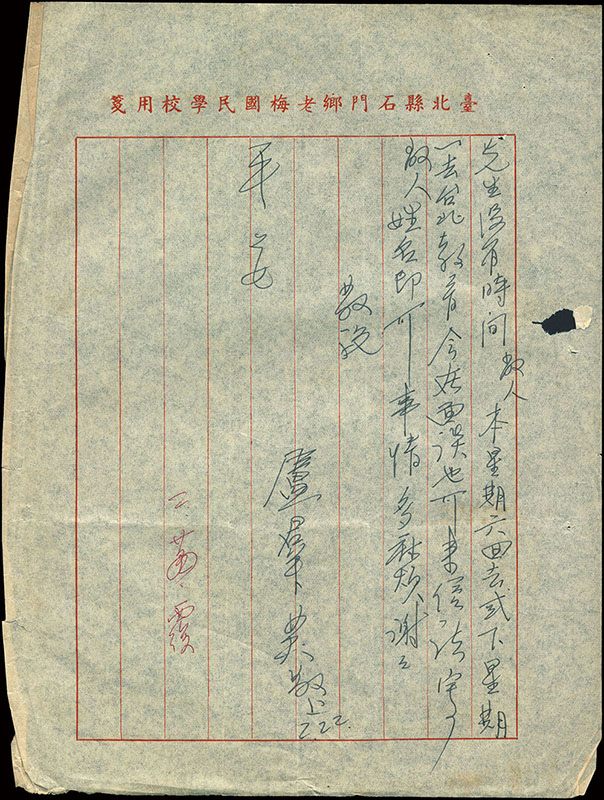 臺北縣石門鄉老梅國民學校用箋
先生沒有時間敝人本星期六回去或下星期
一去台北教育會在面談也可來信請寫
敝人姓名即可事情多麻煩謝之
敬祝
平安
盧 敬上
2.22.
霞